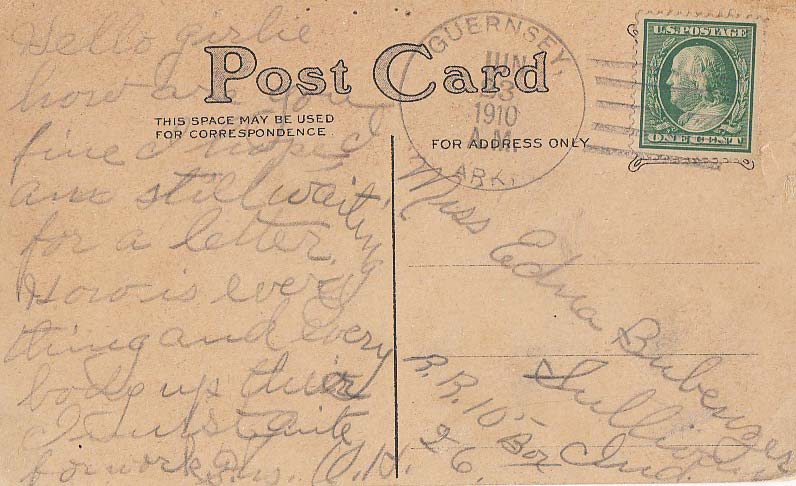 Hello girlie
how are you
fine I hope I
am still waiting
for a letter.
How is every
thing and every
body up their
I just
for work. O.H.
Post Card
THIS SPACE MAY BE USED
FOR CORRESPONDENCE
FOR ADDRESS ONLY
GUERNSEY,
JUN
23
1910
A.M.
ARK.
U.S. POSTAGE
ONE CENT
Miss Edna Bubenzer
Sullivan
R.R. 10 Box Ind.
26.